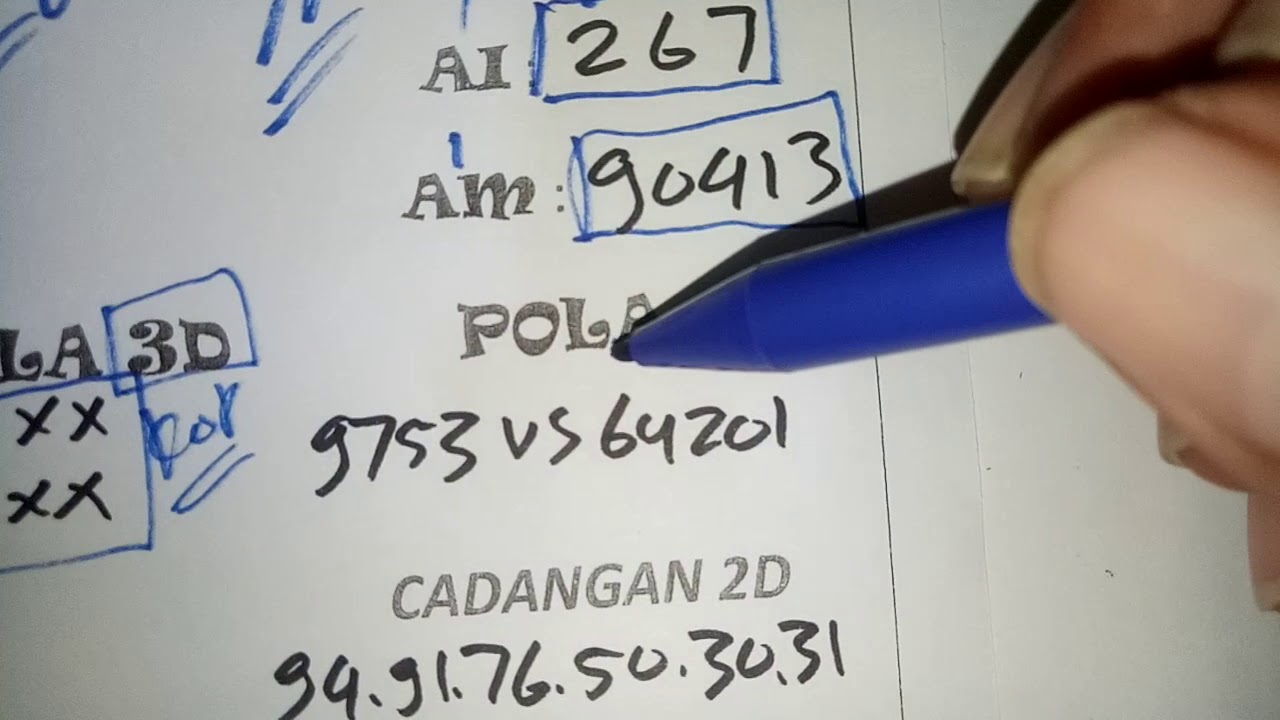 AI 267
Am : 90413
LA 3D
POLA
XX
por
9753 VS 64201
XX
CADANGAN 2D
94.91.76.50.30.31